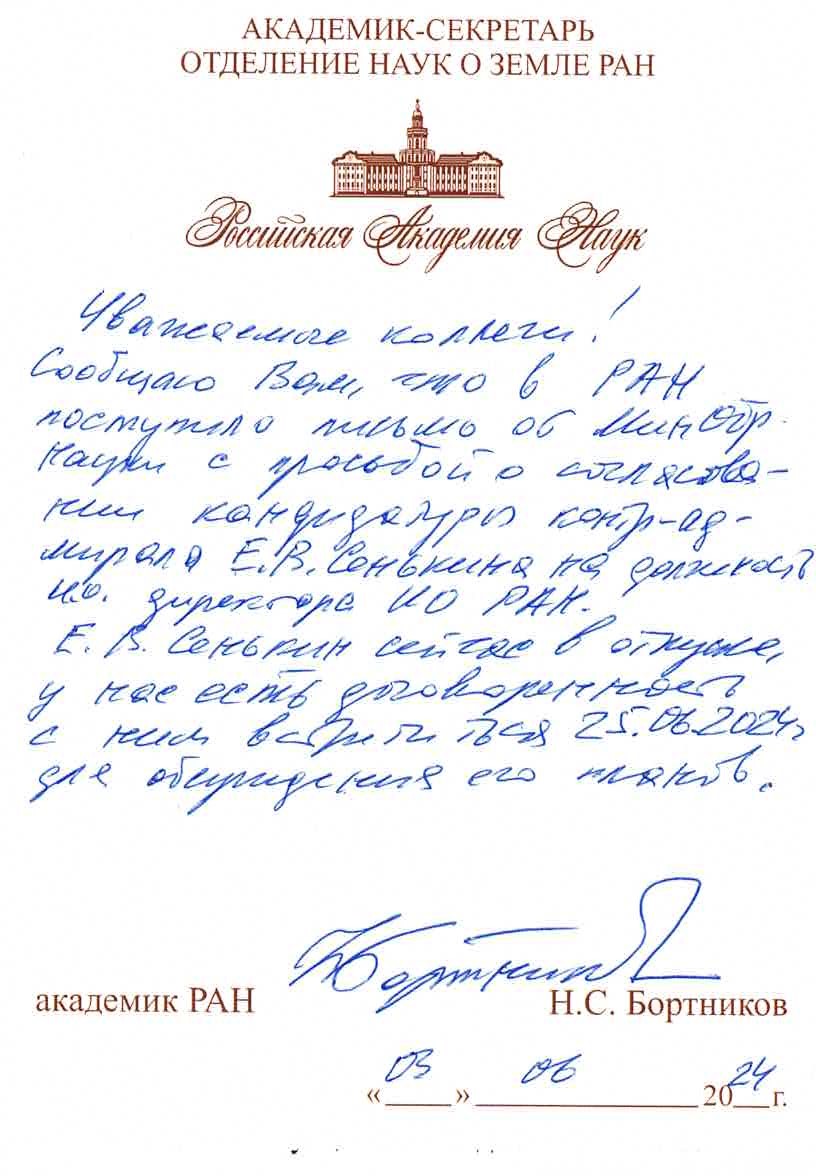 АКАДЕМИК-СЕКРЕТАРЬ
ОТДЕЛЕНИЕ НАУК О ЗЕМЛЕ РАН
Российская Академия Наук
Уважаемые коллеги!
Сообщаю Вам, что в РАН
поступило письмо об Минобр-
науки с просьбой о согласова-
нии кандидатуры контр-ад-
мирала Е.В. Сенькина на должность
и.о. директора ИО РАН.
Е. В. Сенькин сейчас в отпуске,
у нас есть договоренность
с ним встретиться 25.06.2024г
для обсуждения его планов.
Бортников
академик РАН
Н.С. Бортников
«03» 06 2024 г.